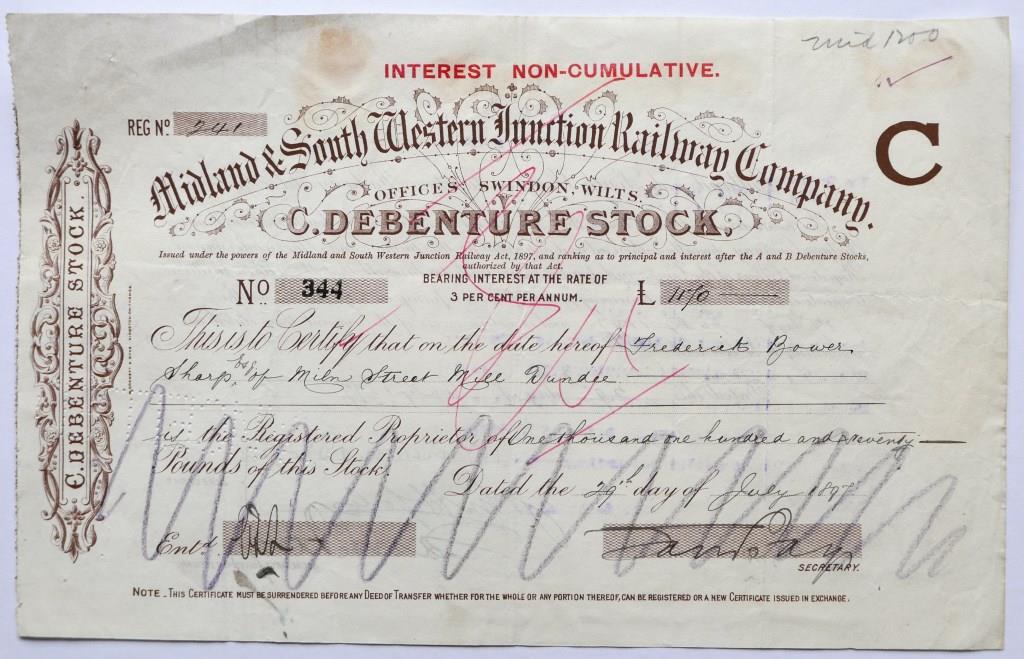 Mid 1200
INTEREST NON-CUMULATIVE.
REG No. 241
C
Midland & South Western Junction Railway Company.
OFFICES SWINDON, WILTS.
C. DEBENTURE STOCK,
Issued under the powers of the Midland and South Western Junction Railway Act, 1897, and ranking as to principal and interest after the A and B Debenture Stocks,
authorized by that Act.
BEARING INTEREST AT THE RATE OF
No. 344
3 PER CENT PER ANNUM.
£ 1170
This is to Certify that on the date hereof Frederick Bower
Sharp, Esq of Miln Street Mill Dundee
is the Registered Proprietor of One thousand one hundred and seventy
Pounds of this Stock.
Dated the 29th day of July 1897
Entd.
SECRETARY.
NOTE _ THIS CERTIFICATE MUST BE SURRENDERED BEFORE ANY DEED OF TRANSFER WHETHER FOR THE WHOLE OR ANY PORTION THEREOF, CAN BE REGISTERED OR A NEW CERTIFICATE ISSUED IN EXCHANGE.
C. DEBENTURE STOCK.